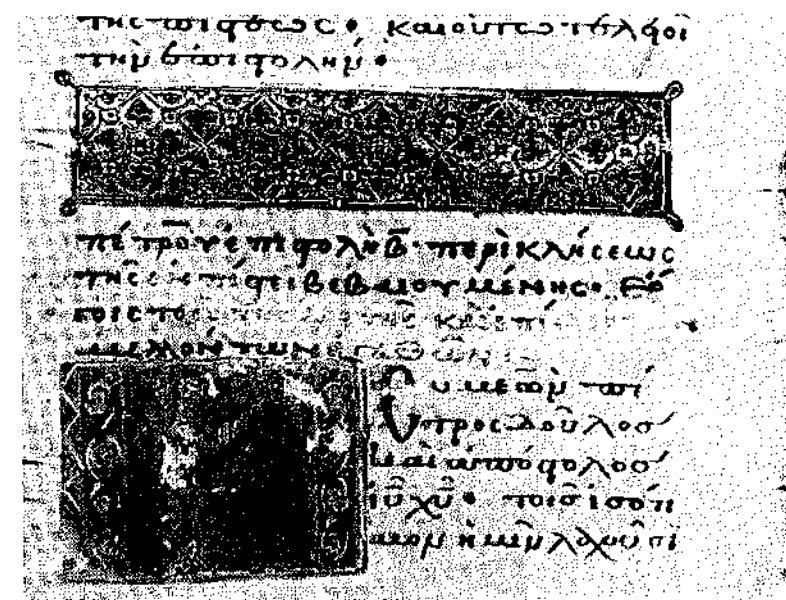 τῆς πίστεως· καὶ οὕτω τελειοῖ
τὴν ἐπιστολήν·
πέτρου ἐπιστολὴ β̄· περὶ κλήσεως
τῆς ἐν πίστει βεβαιουμένης·
μελλόντων ἀγαθῶν
Συμεὼν πέ
τρος δοῦλος
καὶ ἀπόστολος
ιῦ χῦ· τοῖς ἰσότι
μον ἡμῖν λαχοῦσι